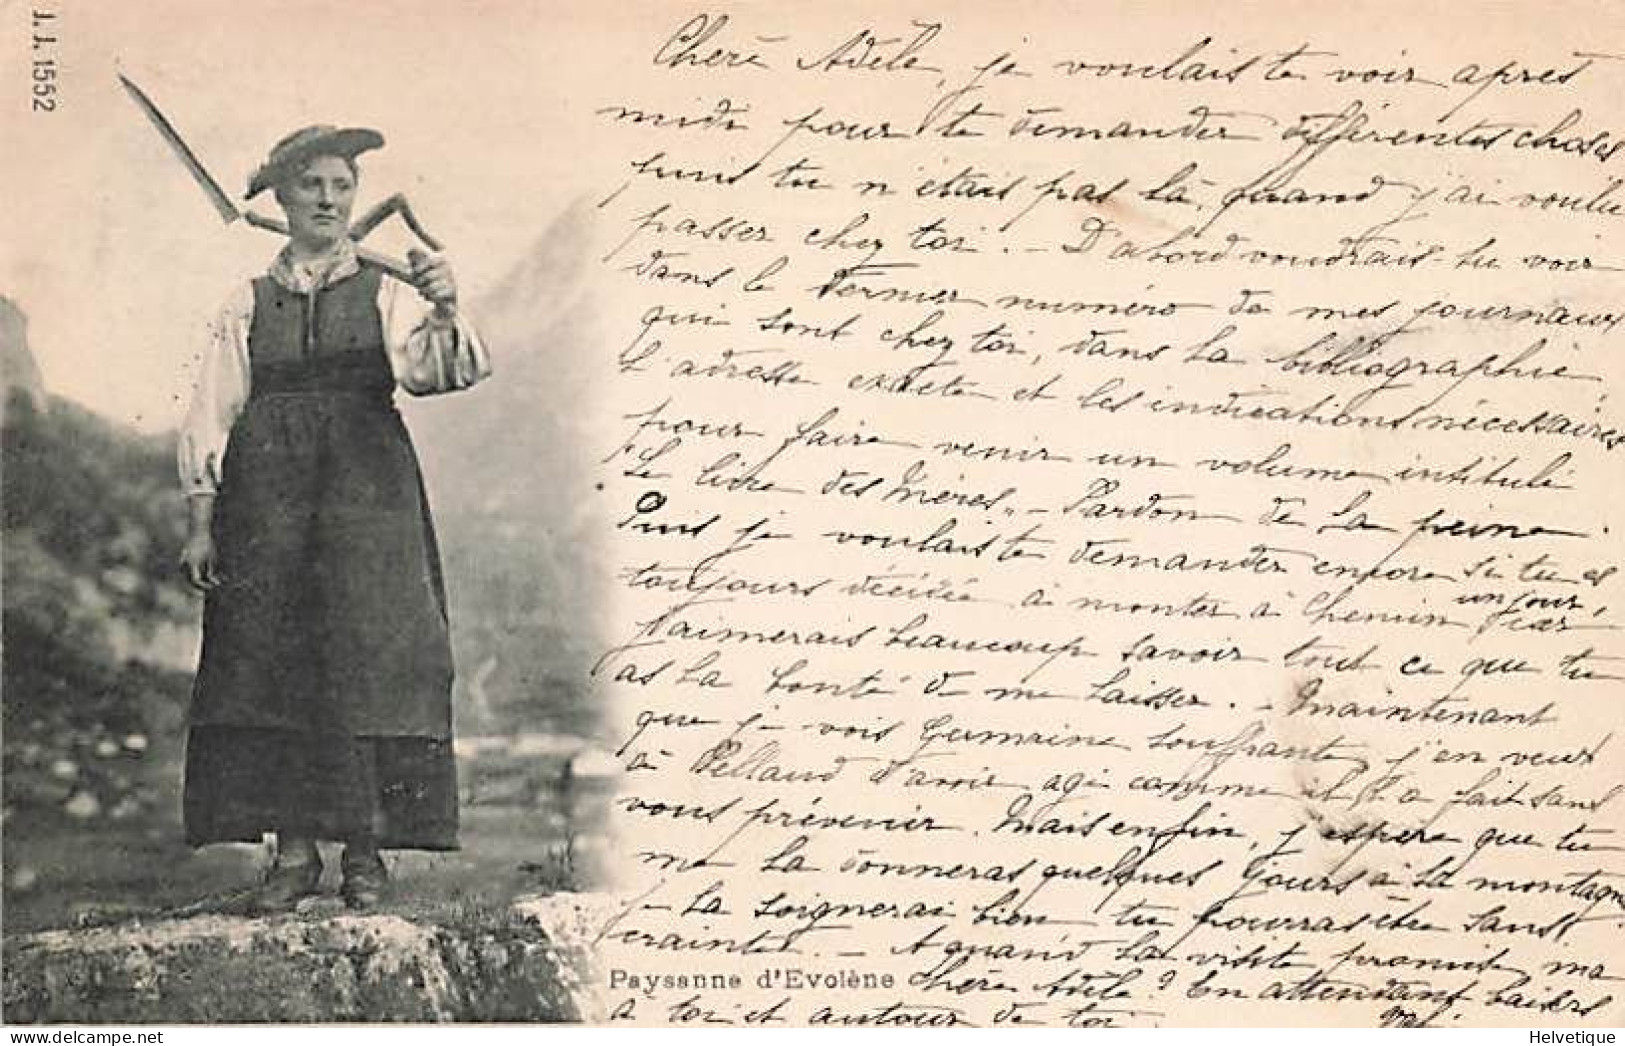 J. J. 1552
Chère Adèle, je voulais te voir après
midi pour te demander différentes choses
puis tu n'étais pas là, quand j'ai voulu
passer chez toi. – D'abord voudrais-tu voir
dans le dernier numéro de mes journaux
qui sont chez toi, dans la bibliographie,
l'adresse exacte et les indications nécessaires
pour faire venir un volume intitulé
"Le livre des Mères" – Pardon de la peine.
Puis je voulais te demander encore si tu es
toujours décidée à monter à Chemin un jour, car
j'aimerais beaucoup savoir tout ce que tu
as la bonté de me laisser. – Maintenant
que je vois Germaine souffrante, j'en veux
à Pellaud d'avoir agi comme il l'a fait sans
vous prévenir. Mais enfin, j'espère que tu
me la donneras quelques jours à la montagne
je la soignerai bien tu pourras être sans
crainte. – A quand la visite promise, ma
chère Adèle? En attendant baisers
à toi et autour de toi.
Paysanne d'Evolène
Helvetique